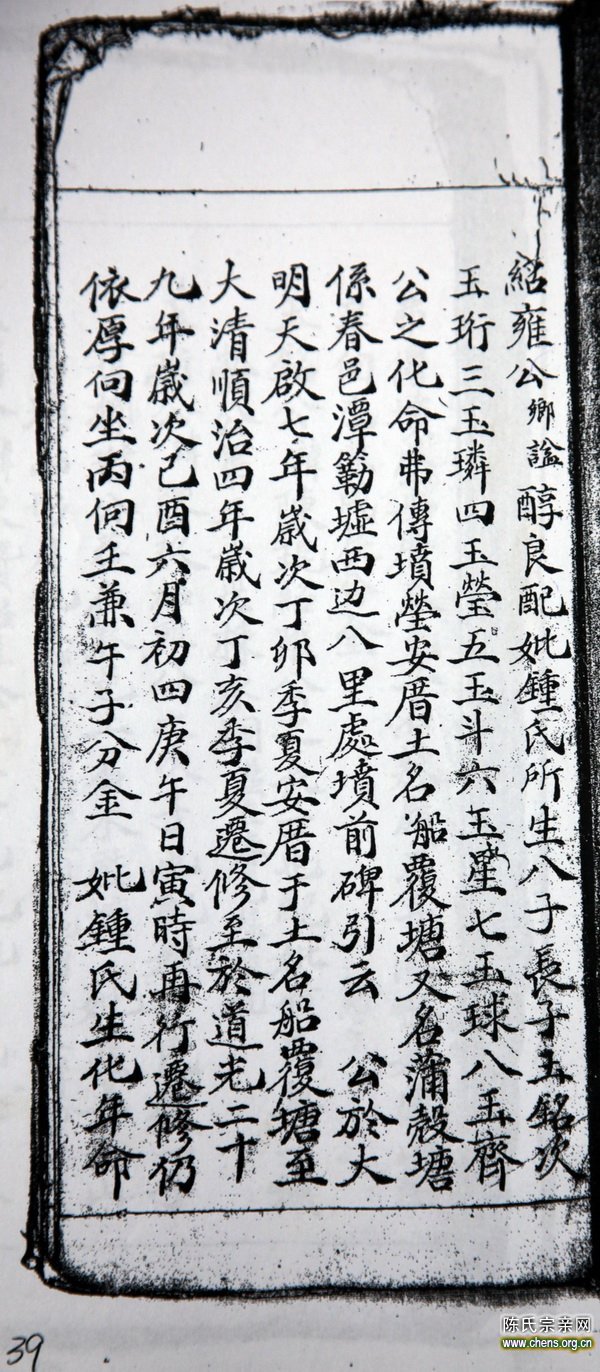 紹雍公鄉諡醇良配妣鍾氏所生八子長子玉銘次
玉珩三玉璘四玉瑩五玉斗六玉星七玉球八玉齊
公之化命弗傳墳塋安厝土名船覆塘又名蒲殼塘
係春邑潭簕墟西边八里處墳前碑引云 公於大
明天啟七年歲次丁卯季夏安厝于土名船覆塘至
大清順治四年歲次丁亥季夏遷修至於道光二十
九年歲次己酉六月初四庚午日寅時再行遷修仍
依厚向坐丙向壬兼午子分金 妣鍾氏生化年命
39
陈氏宗亲网
www.chens.org.cn